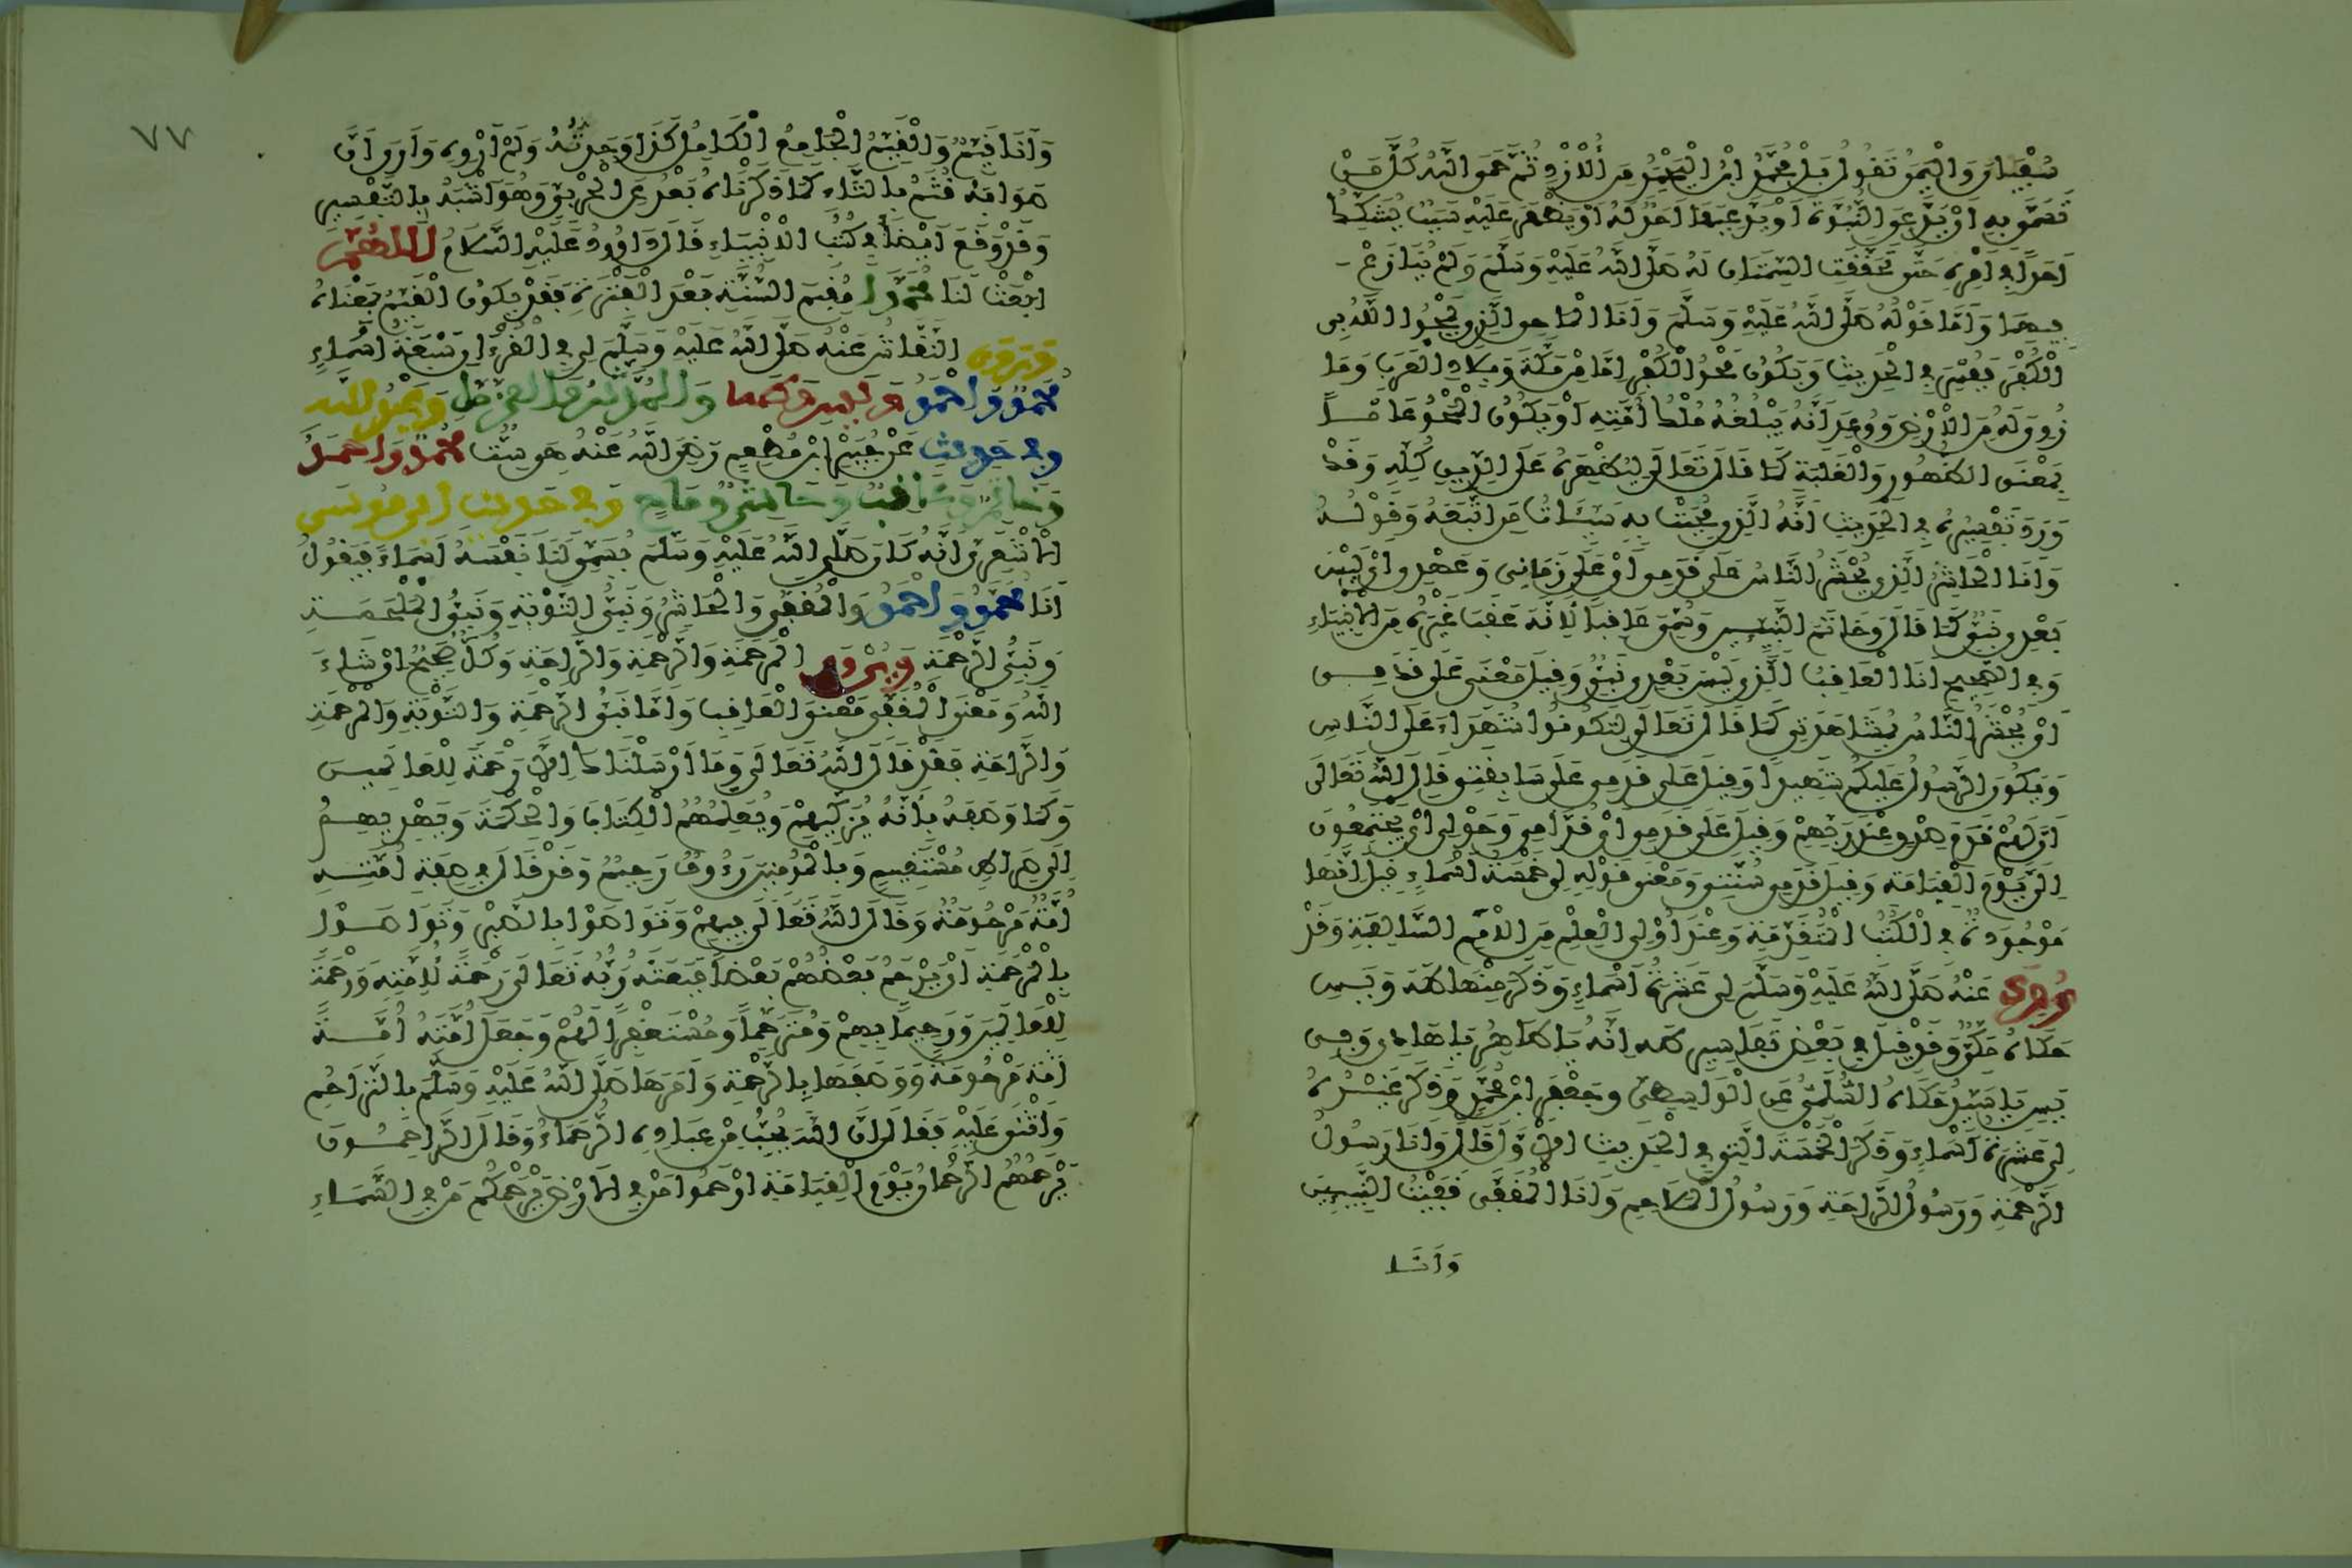 سُفْيَانَ وَالْيَمَنُ تَقُولُ بَلْ مُحَمَّدُ ابْنُ الْيَحْمُدِ مِنَ الْأَزْدِ ثُمَّ حَمَى اللَّهُ كُلَّ مَنْ
تَسَمَّى بِهِ أَنْ يَدَّعِيَ النُّبُوَّةَ أَوْ يَدَّعِيَهَا أَحَدٌ لَهُ أَوْ يَظْهَرَ عَلَيْهِ سَبَبٌ يُشَكِّكُ
أَحَدًا فِي أَمْرِهِ حَتَّى تَحَقَّقَتِ السِّمَتَانِ لَهُ صَلَّى اللَّهُ عَلَيْهِ وَسَلَّمَ وَلَمْ يُنَازَعْ
فِيهِمَا وَأَمَّا قَوْلُهُ صَلَّى اللَّهُ عَلَيْهِ وَسَلَّمَ وَأَنَا الْمَاحِي الَّذِي يَمْحُو اللَّهُ بِي
الْكُفْرَ فَفُسِّرَ فِي الْحَدِيثِ وَيَكُونُ مَحْوُ الْكُفْرِ إِمَّا مِنْ مَكَّةَ وَبِلَادِ الْعَرَبِ وَمَا
زُوِيَ لَهُ مِنَ الْأَرْضِ وَوُعِدَ أَنَّهُ يَبْلُغُهُ مُلْكُ أُمَّتِهِ أَوْ يَكُونُ الْمَحْوُ عَامًّا
بِمَعْنَى الظُّهُورِ وَالْغَلَبَةِ كَمَا قَالَ تَعَالَى لِيُظْهِرَهُ عَلَى الدِّينِ كُلِّهِ وَقَدْ
وَرَدَ تَفْسِيرُهُ فِي الْحَدِيثِ أَنَّهُ الَّذِي مُحِيَتْ بِهِ سَيِّئَاتُ مَنِ اتَّبَعَهُ وَقَوْلُهُ
وَأَنَا الْحَاشِرُ الَّذِي يُحْشَرُ النَّاسُ عَلَى قَدَمِي أَوْ عَلَى زَمَانِي وَعَهْدِي أَيْ لَيْسَ
بَعْدِي نَبِيٌّ كَمَا قَالَ وَخَاتَمَ النَّبِيِّينَ وَسُمِّيَ عَاقِبًا لِأَنَّهُ عَقَبَ غَيْرَهُ مِنَ الْأَنْبِيَاءِ
وَفِي الصَّحِيحِ أَنَا الْعَاقِبُ الَّذِي لَيْسَ بَعْدِي نَبِيٌّ وَقِيلَ مَعْنَى عَلَى قَدَمِي
أَيْ يُحْشَرُ النَّاسُ بِمُشَاهَدَتِي كَمَا قَالَ تَعَالَى لِتَكُونُوا شُهَدَاءَ عَلَى النَّاسِ
وَيَكُونَ الرَّسُولُ عَلَيْكُمْ شَهِيدًا وَقِيلَ عَلَى قَدَمِي عَلَى سَابِقَتِي قَالَ اللَّهُ تَعَالَى
أَنَّ لَهُمْ قَدَمَ صِدْقٍ عِنْدَ رَبِّهِمْ وَقِيلَ عَلَى قَدَمِي أَيْ قُدَّامِي وَحَوْلِي أَيْ يَجْتَمِعُونَ
إِلَيَّ يَوْمَ الْقِيَامَةِ وَقِيلَ قَدَمِي سُنَّتِي وَمَعْنَى قَوْلِهِ لِي خَمْسَةُ أَسْمَاءٍ قِيلَ أَنَّهَا
مَوْجُودَةٌ فِي الْكُتُبِ الْمُتَقَدِّمَةِ وَعِنْدَ أُولِي الْعِلْمِ مِنَ الْأُمَمِ السَّالِفَةِ وَقَدْ
رُوِيَ عَنْهُ صَلَّى اللَّهُ عَلَيْهِ وَسَلَّمَ لِي عَشَرَةُ أَسْمَاءٍ وَذَكَرَ مِنْهَا طَهَ وَيَسِ
حَكَاهُ مَكِّيٌّ وَقَدْ قِيلَ فِي بَعْضِ تَفَاسِيرِ طه أَنَّهُ يَا طَاهِرُ يَا هَادِي وَفِي
يَسِ يَا سَيِّدُ حَكَاهُ السُّلَمِيُّ عَنِ الْوَاسِطِيِّ وَجَعْفَرِ ابْنِ مُحَمَّدٍ وَذَكَرَ غَيْرُهُ
لِي عَشَرَةُ أَسْمَاءٍ وَذَكَرَ الْخَمْسَةَ الَّتِي فِي الْحَدِيثِ الْأَوَّلِ قَالَ وَأَنَا رَسُولُ
الرَّحْمَةِ وَرَسُولُ الرَّاحَةِ وَرَسُولُ الْمَلَاحِمِ وَأَنَا الْمُقَفَّى قَفَّيْتُ النَّبِيِّينَ
وَأَنَا
٧٧
وَأَنَا قَيِّمٌ وَالْقَيِّمُ الْجَامِعُ الْكَامِلُ كَذَا وَجَدْتُهُ وَلَمْ أَرْوِهِ وَأَرَى أَنَّ
صَوَابَهُ قُثَمُ بِالثَّاءِ كَمَا ذَكَرْنَاهُ بَعْدُ عَنِ الْحَرْبِيِّ وَهُوَ أَشْبَهُ بِالتَّفْسِيرِ
وَقَدْ وَقَعَ أَيْضًا فِي كُتُبِ الْأَنْبِيَاءِ قَالَ دَاوُودُ عَلَيْهِ السَّلَامُ اللَّهُمَّ
ابْعَثْ لَنَا مُحَمَّدًا مُقِيمَ السُّنَّةِ بَعْدَ الْفَتْرَةِ فَقَدْ يَكُونُ الْقَيِّمُ بِمَعْنَاهُ
وَرَوَى النَّقَّاشُ عَنْهُ صَلَّى اللَّهُ عَلَيْهِ وَسَلَّمَ لِي فِي الْقُرْآنِ سَبْعَةُ أَسْمَاءٍ
مُحَمَّدٌ وَأَحْمَدُ وَيَسِ وَطَهَ وَالْمُدَّثِّرُ وَالْمُزَّمِّلُ وَعَبْدُ اللَّهِ
وَفِي حَدِيثٍ عَنْ جُبَيْرِ ابْنِ مُطْعِمٍ رَضِيَ اللَّهُ عَنْهُ هِيَ سِتٌّ مُحَمَّدٌ وَأَحْمَدُ
وَخَاتَمٌ وَعَاقِبٌ وَحَاشِرٌ وَمَاحٍ وَفِي حَدِيثِ أَبِي مُوسَى
الْأَشْعَرِيِّ أَنَّهُ كَانَ صَلَّى اللَّهُ عَلَيْهِ وَسَلَّمَ يُسَمِّي لَنَا نَفْسَهُ أَسْمَاءَ فَيَقُولُ
أَنَا مُحَمَّدٌ وَأَحْمَدُ وَالْمُقَفَّى وَالْحَاشِرُ وَنَبِيُّ التَّوْبَةِ وَنَبِيُّ الْمَلْحَمَةِ
وَنَبِيُّ الرَّحْمَةِ وَيُرْوَى الْمَرْحَمَةِ وَالرَّحْمَةِ وَالرَّاحَةِ وَكُلٌّ صَحِيحٌ إِنْ شَاءَ
اللَّهُ وَمَعْنَى الْمُقَفَّى مَعْنَى الْعَاقِبِ وَأَمَّا نَبِيُّ الرَّحْمَةِ وَالتَّوْبَةِ وَالْمَرْحَمَةِ
وَالرَّاحَةِ فَقَدْ قَالَ اللَّهُ تَعَالَى وَمَا أَرْسَلْنَاكَ إِلَّا رَحْمَةً لِلْعَالَمِينَ
وَكَمَا وَصَفَهُ بِأَنَّهُ يُزَكِّيهِمْ وَيُعَلِّمُهُمُ الْكِتَابَ وَالْحِكْمَةَ وَيَهْدِيهِمْ
إِلَى صِرَاطٍ مُسْتَقِيمٍ وَبِالْمُؤْمِنِينَ رَءُوفٌ رَحِيمٌ وَقَدْ قَالَ فِي صِفَةِ أُمَّتِهِ
أُمَّةٌ مَرْحُومَةٌ وَقَالَ اللَّهُ تَعَالَى فِيهِمْ وَتَوَاصَوْا بِالصَّبْرِ وَتَوَاصَوْا
بِالْمَرْحَمَةِ أَيْ يَرْحَمُ بَعْضُهُمْ بَعْضًا فَبَعَثَهُ رَبُّهُ تَعَالَى رَحْمَةً لِأُمَّتِهِ وَرَحْمَةً
لِلْعَالَمِينَ وَرَحِيمًا بِهِمْ وَمُتَرَحِّمًا وَمُسْتَغْفِرًا لَهُمْ وَجَعَلَ أُمَّتَهُ أُمَّةً
أُمَّةً مَرْحُومَةً وَوَصَفَهَا بِالرَّحْمَةِ وَأَمَرَهَا صَلَّى اللَّهُ عَلَيْهِ وَسَلَّمَ بِالتَّرَاحُمِ
وَأَثْنَى عَلَيْهِ فَقَالَ إِنَّ اللَّهَ يُحِبُّ مِنْ عِبَادِهِ الرُّحَمَاءَ وَقَالَ الرَّاحِمُونَ
يَرْحَمُهُمُ الرَّحْمَانُ يَوْمَ الْقِيَامَةِ ارْحَمُوا مَنْ فِي الْأَرْضِ يَرْحَمْكُمْ مَنْ فِي السَّمَاءِ